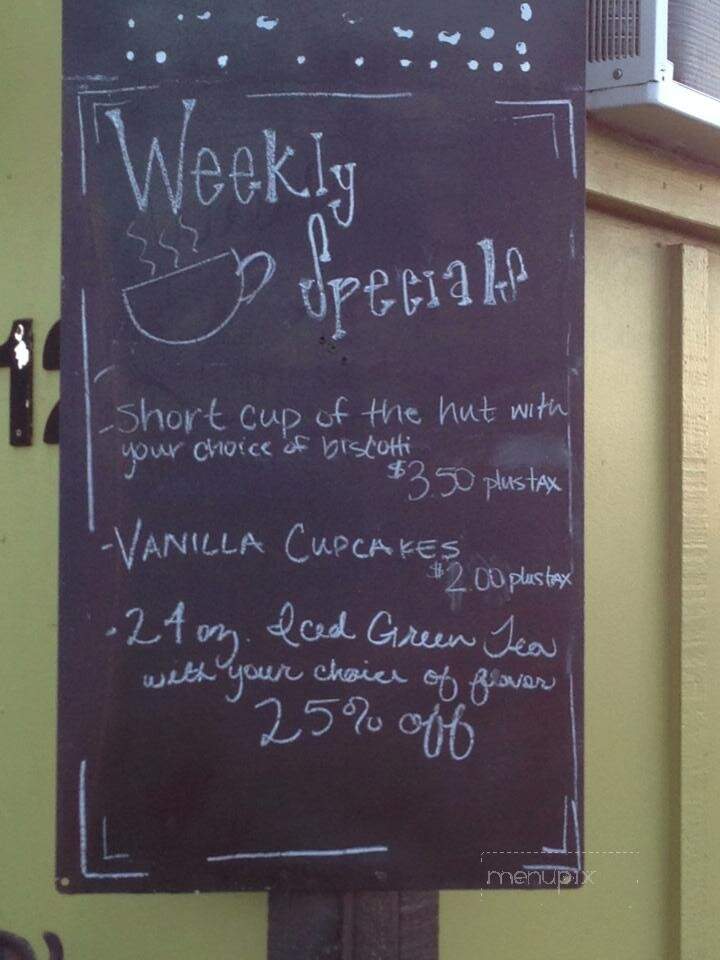 Weekly
Specials
-short cup of the hut with
your choice of biscotti
$3.50 plus tax
-VANILLA CUPCAKES
$2.00 plus tax
-24 oz. Iced Green Tea
with your choice of flavor
25% off
12
menupix